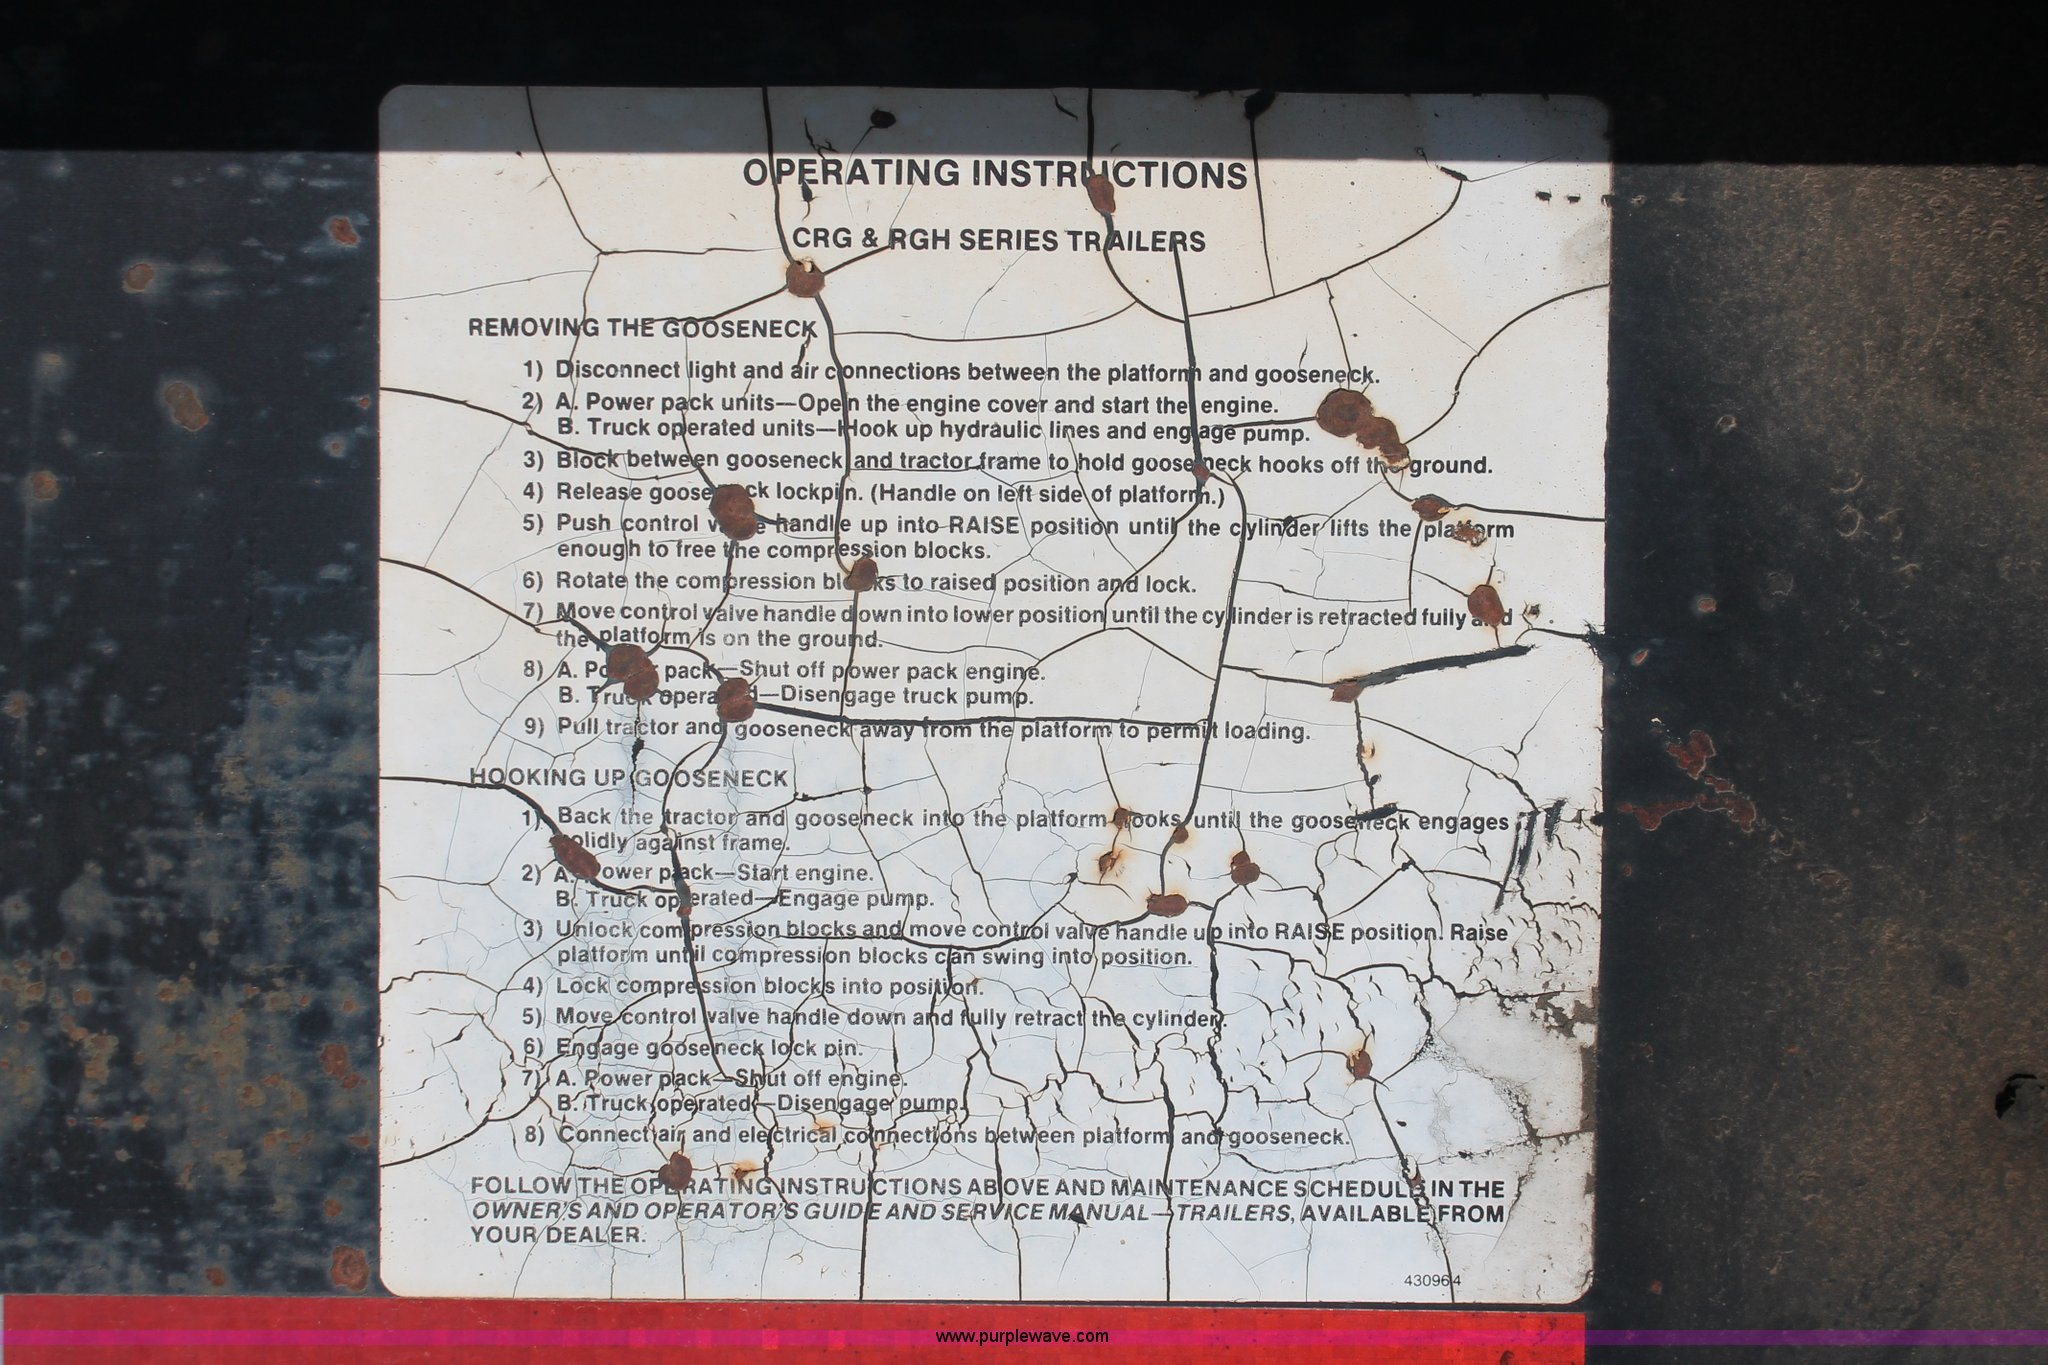 OPERATING INSTRUCTIONS
CRG & RGH SERIES TRAILERS
REMOVING THE GOOSENECK
1) Disconnect light and air connections between the platform and gooseneck.
2) A. Power pack units—Open the engine cover and start the engine.
B. Truck operated units—Hook up hydraulic lines and engage pump.
3) Block between gooseneck and tractor frame to hold gooseneck hooks off the ground.
4) Release gooseneck lockpin. (Handle on left side of platform.)
5) Push control valve handle up into RAISE position until the cylinder lifts the platform
enough to free the compression blocks.
6) Rotate the compression blocks to raised position and lock.
7) Move control valve handle down into lower position until the cylinder is retracted fully and
the platform is on the ground.
8) A. Power pack—Shut off power pack engine.
B. Truck operated—Disengage truck pump.
9) Pull tractor and gooseneck away from the platform to permit loading.
HOOKING UP GOOSENECK
1) Back the tractor and gooseneck into the platform hooks until the gooseneck engages
solidly against frame.
2) A. Power pack—Start engine.
B. Truck operated—Engage pump.
3) Unlock compression blocks and move control valve handle up into RAISE position. Raise
platform until compression blocks can swing into position.
4) Lock compression blocks into position.
5) Move control valve handle down and fully retract the cylinder.
6) Engage gooseneck lock pin.
7) A. Power pack—Shut off engine.
B. Truck operated—Disengage pump.
8) Connect air and electrical connections between platform and gooseneck.
FOLLOW THE OPERATING INSTRUCTIONS ABOVE AND MAINTENANCE SCHEDULE IN THE
OWNER'S AND OPERATOR'S GUIDE AND SERVICE MANUAL—TRAILERS, AVAILABLE FROM
YOUR DEALER.
430964
www.purplewave.com